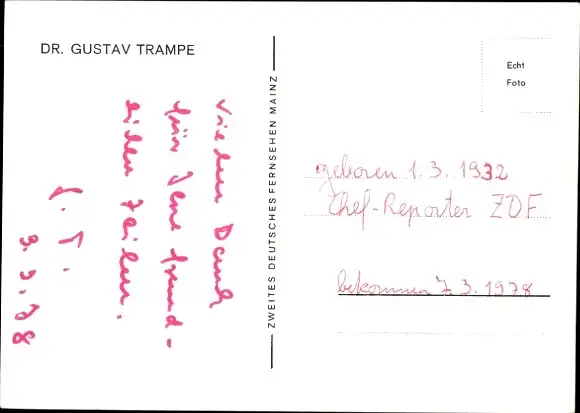 DR. GUSTAV TRAMPE
vielen Dank
für Ihre freund-
lichen Zeilen.
G. T.
3.3.78
ZWEITES DEUTSCHES FERNSEHEN MAINZ
Echt
Foto
geboren 1.3.1932
Chef-Reporter ZDF
bekommen 7.3.1978